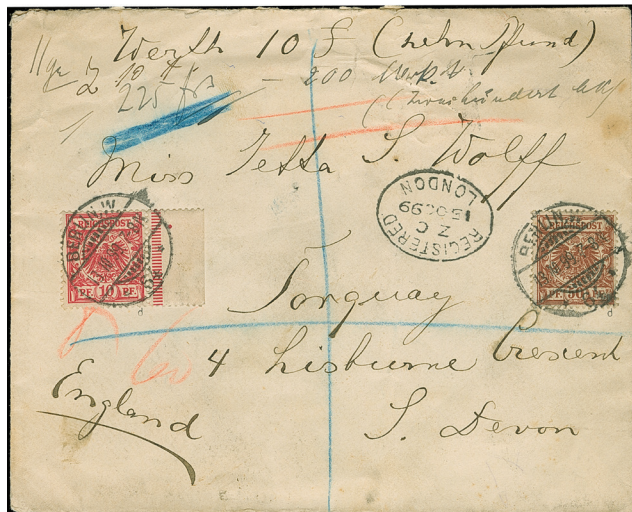 Werth 10 £ (zehn Pfund)
225 frs – 200 Mark
(Zweihundert Mk)
Miss Jetta S. Wolff
REGISTERED
Z C
15 OC 99
LONDON
BERLIN W
REICHSPOST
PF. 10 PF.
BERLIN
REICHSPOST
PF. 50 PF.
Torquay
4 Lisburne Crescent
England
S. Devon